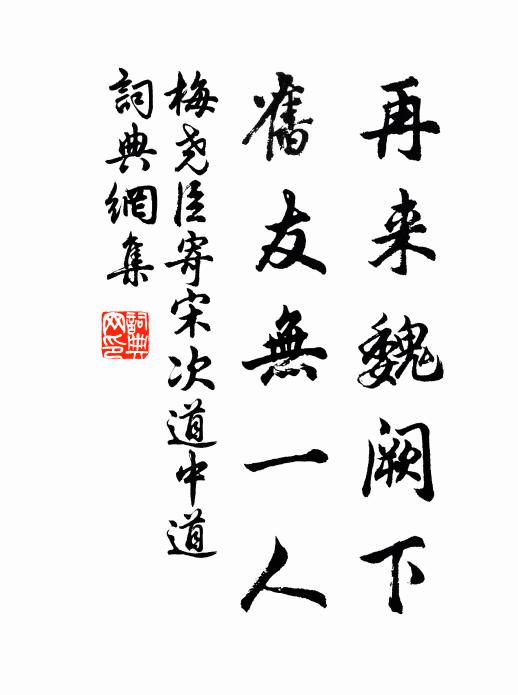 再来魏阙下
舊友無一人
梅尧臣寄宋次道中道
詞典網集
詞典
网印